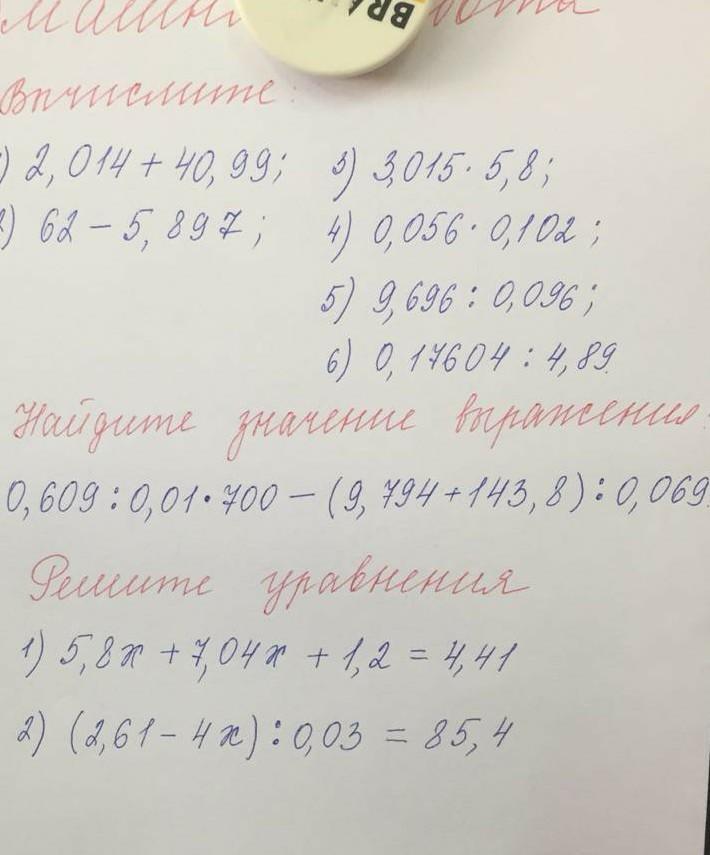 BRA
Вычислите:
) 2,014 + 40,99; 3) 3,015 · 5,8;
2) 62 – 5,897; 4) 0,056 · 0,102;
5) 9,696 : 0,096;
6) 0,17604 : 4,89.
Найдите значение выражения:
0,609 : 0,01 · 700 – (9,794 + 143,8) : 0,069
Решите уравнения
1) 5,8x + 7,04x + 1,2 = 4,41
2) (2,61 – 4x) : 0,03 = 85,4